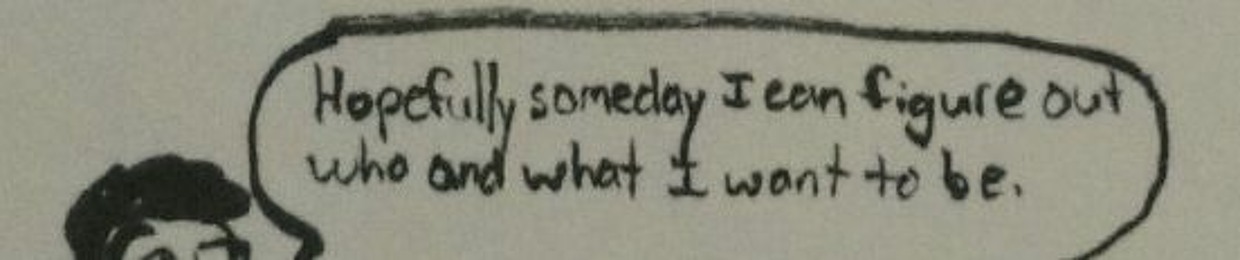 Hopefully someday I can figure out
who and what I want to be.